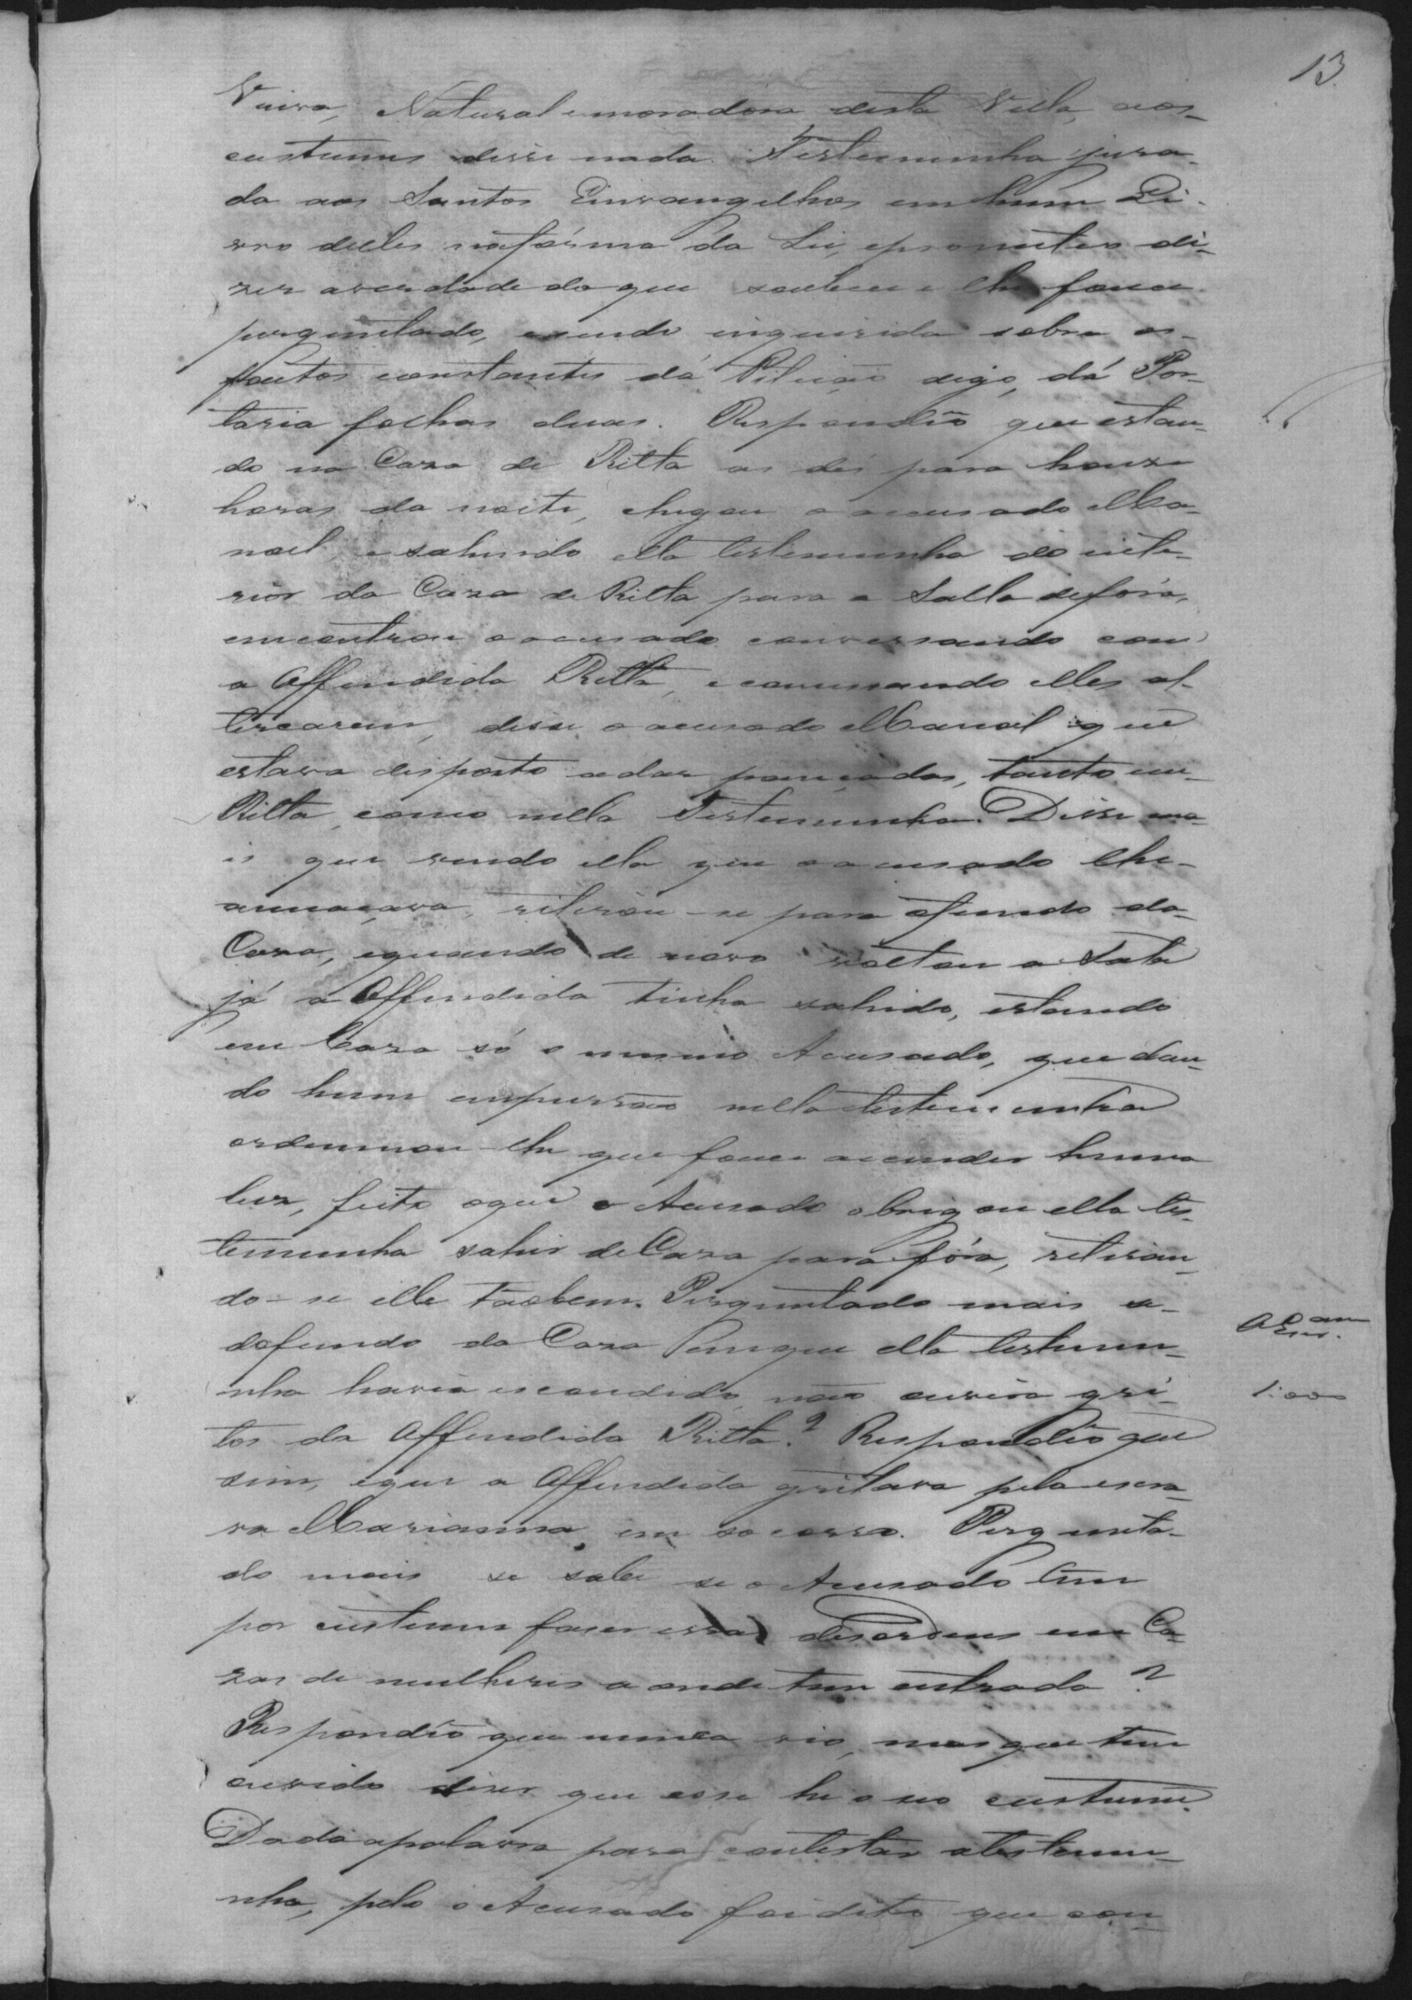 13
Viuva, Natural e moradora desta Villa, aos
custumes disse nada. Testemunha jura-
da aos Santos Einvangelhos em hum Li-
vro delles na fórma da Lei, eprometeo di-
zer averdade do que soubece e lhe fosse
perguntado, esendo inquirida sobre os
fautos constantes da Petição digo, dá Por-
taria folhas duas. Respondêo que estan-
do na Caza de Ritta as dés para honze
horas da noite, chegou o acusado Ma-
noel, e sahindo ella testemunha do inte-
rior da Caza de Ritta para a Salla defóra,
encontrou o acusado conversando com
a Affendida Ritta, e comessando elles al-
tercarem, disse o acusado Manoel que
estava disposto adar pancadas, tanto em
Ritta, como nella Testemunha. Disse ma-
is que vendo ella que o acusado lhe
ameaçava, retirou-se para ofundo da
Caza, equando de novo voltou a Sala
já a Offendida tinha sahido, estando
em Caza só o mesmo Acusado, que dan-
do hum empurrão nella testemunha
ordennou-lhe que fosse acender huma
luz, feito oque o Acusado obrigou ella tes-
temunha sahir de Caza para fóra, retiran-
do-se elle taobem. Perguntado mais se
dofundo da Caza em que ella testemu-
nha havia escondido, não ouvira gri-
tos da Offendida Ritta? Respondêo que
sim, eque a Offendida gritava pela escra-
va Marianna, em socorro. Pergunta-
do mais se sabe se o Acusado tem
por custume faser essas desordens em Ca-
zas de mulheres a onde tem entrada?
Respondeo que nunca vio, mas que tem
ouvido diser que esse he o seo custume.
Dada apalavra para contestar atestemu-
nha, pelo o Acusado foi dito que con-
1:000